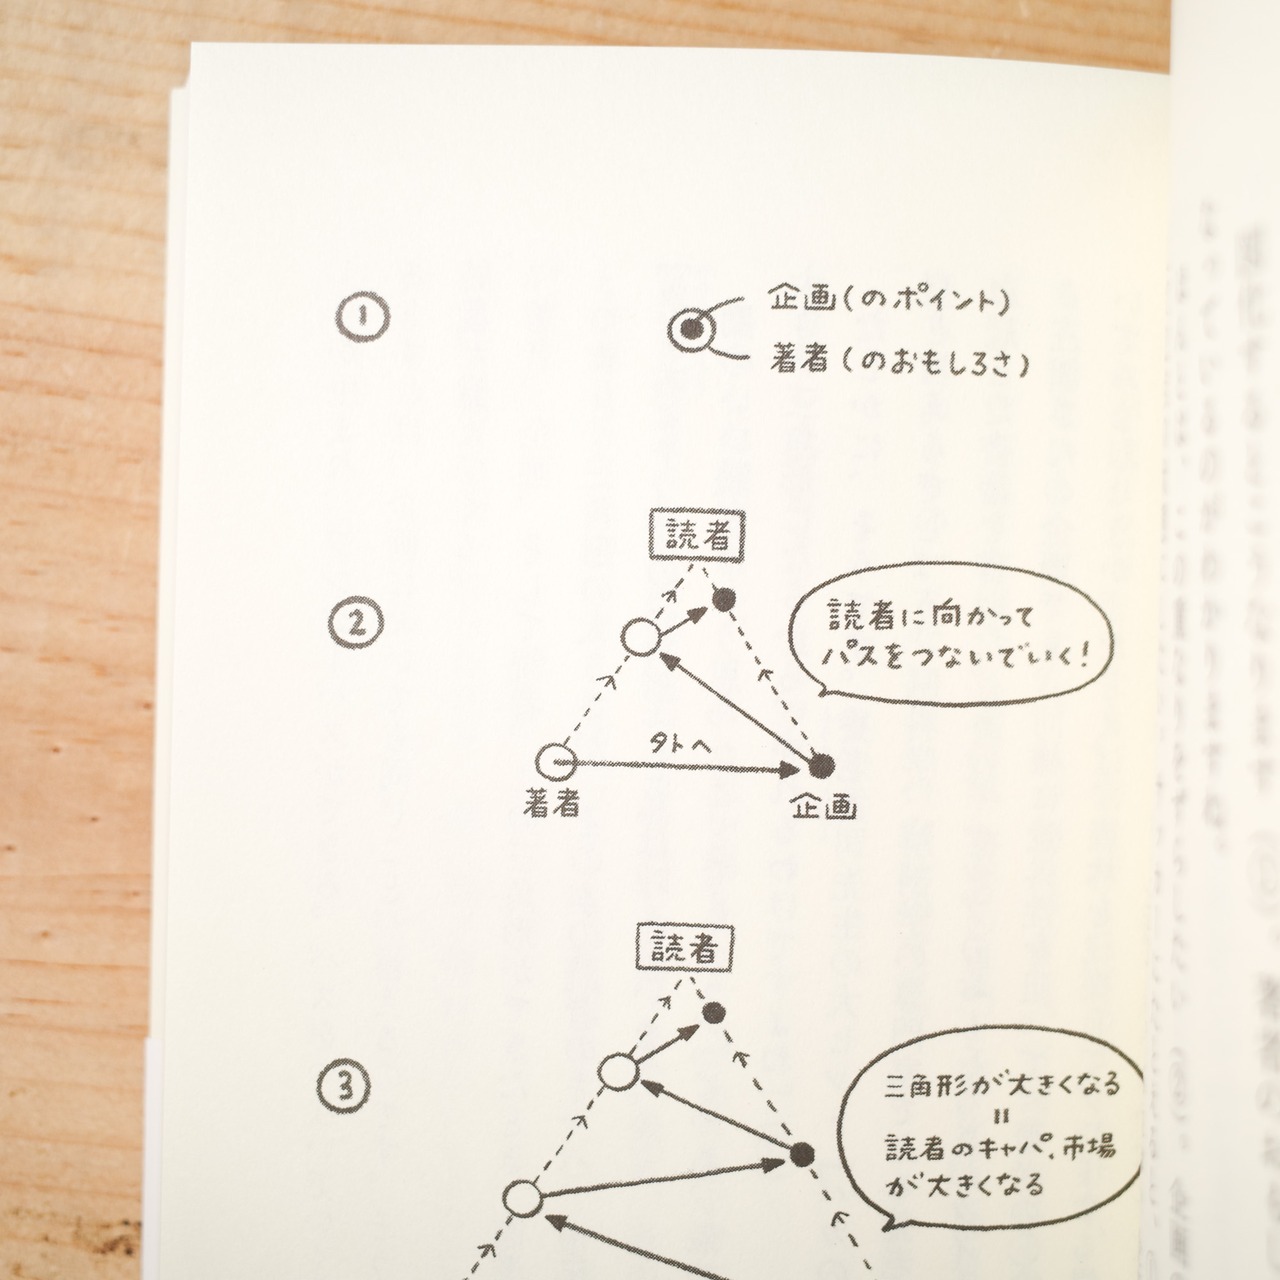 ①
企画(のポイント)
著者(のおもしろさ)
②
読者
読者に向かって
パスをつないでいく!
外へ
著者
企画
③
読者
三角形が大きくなる
=
読者のキャパ、市場
が大きくなる